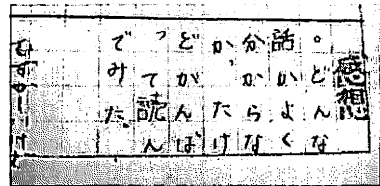 感想
。どんな
話かよく
分からな
かったけ
どがんば
って読ん
でみた。
むずかしいけ